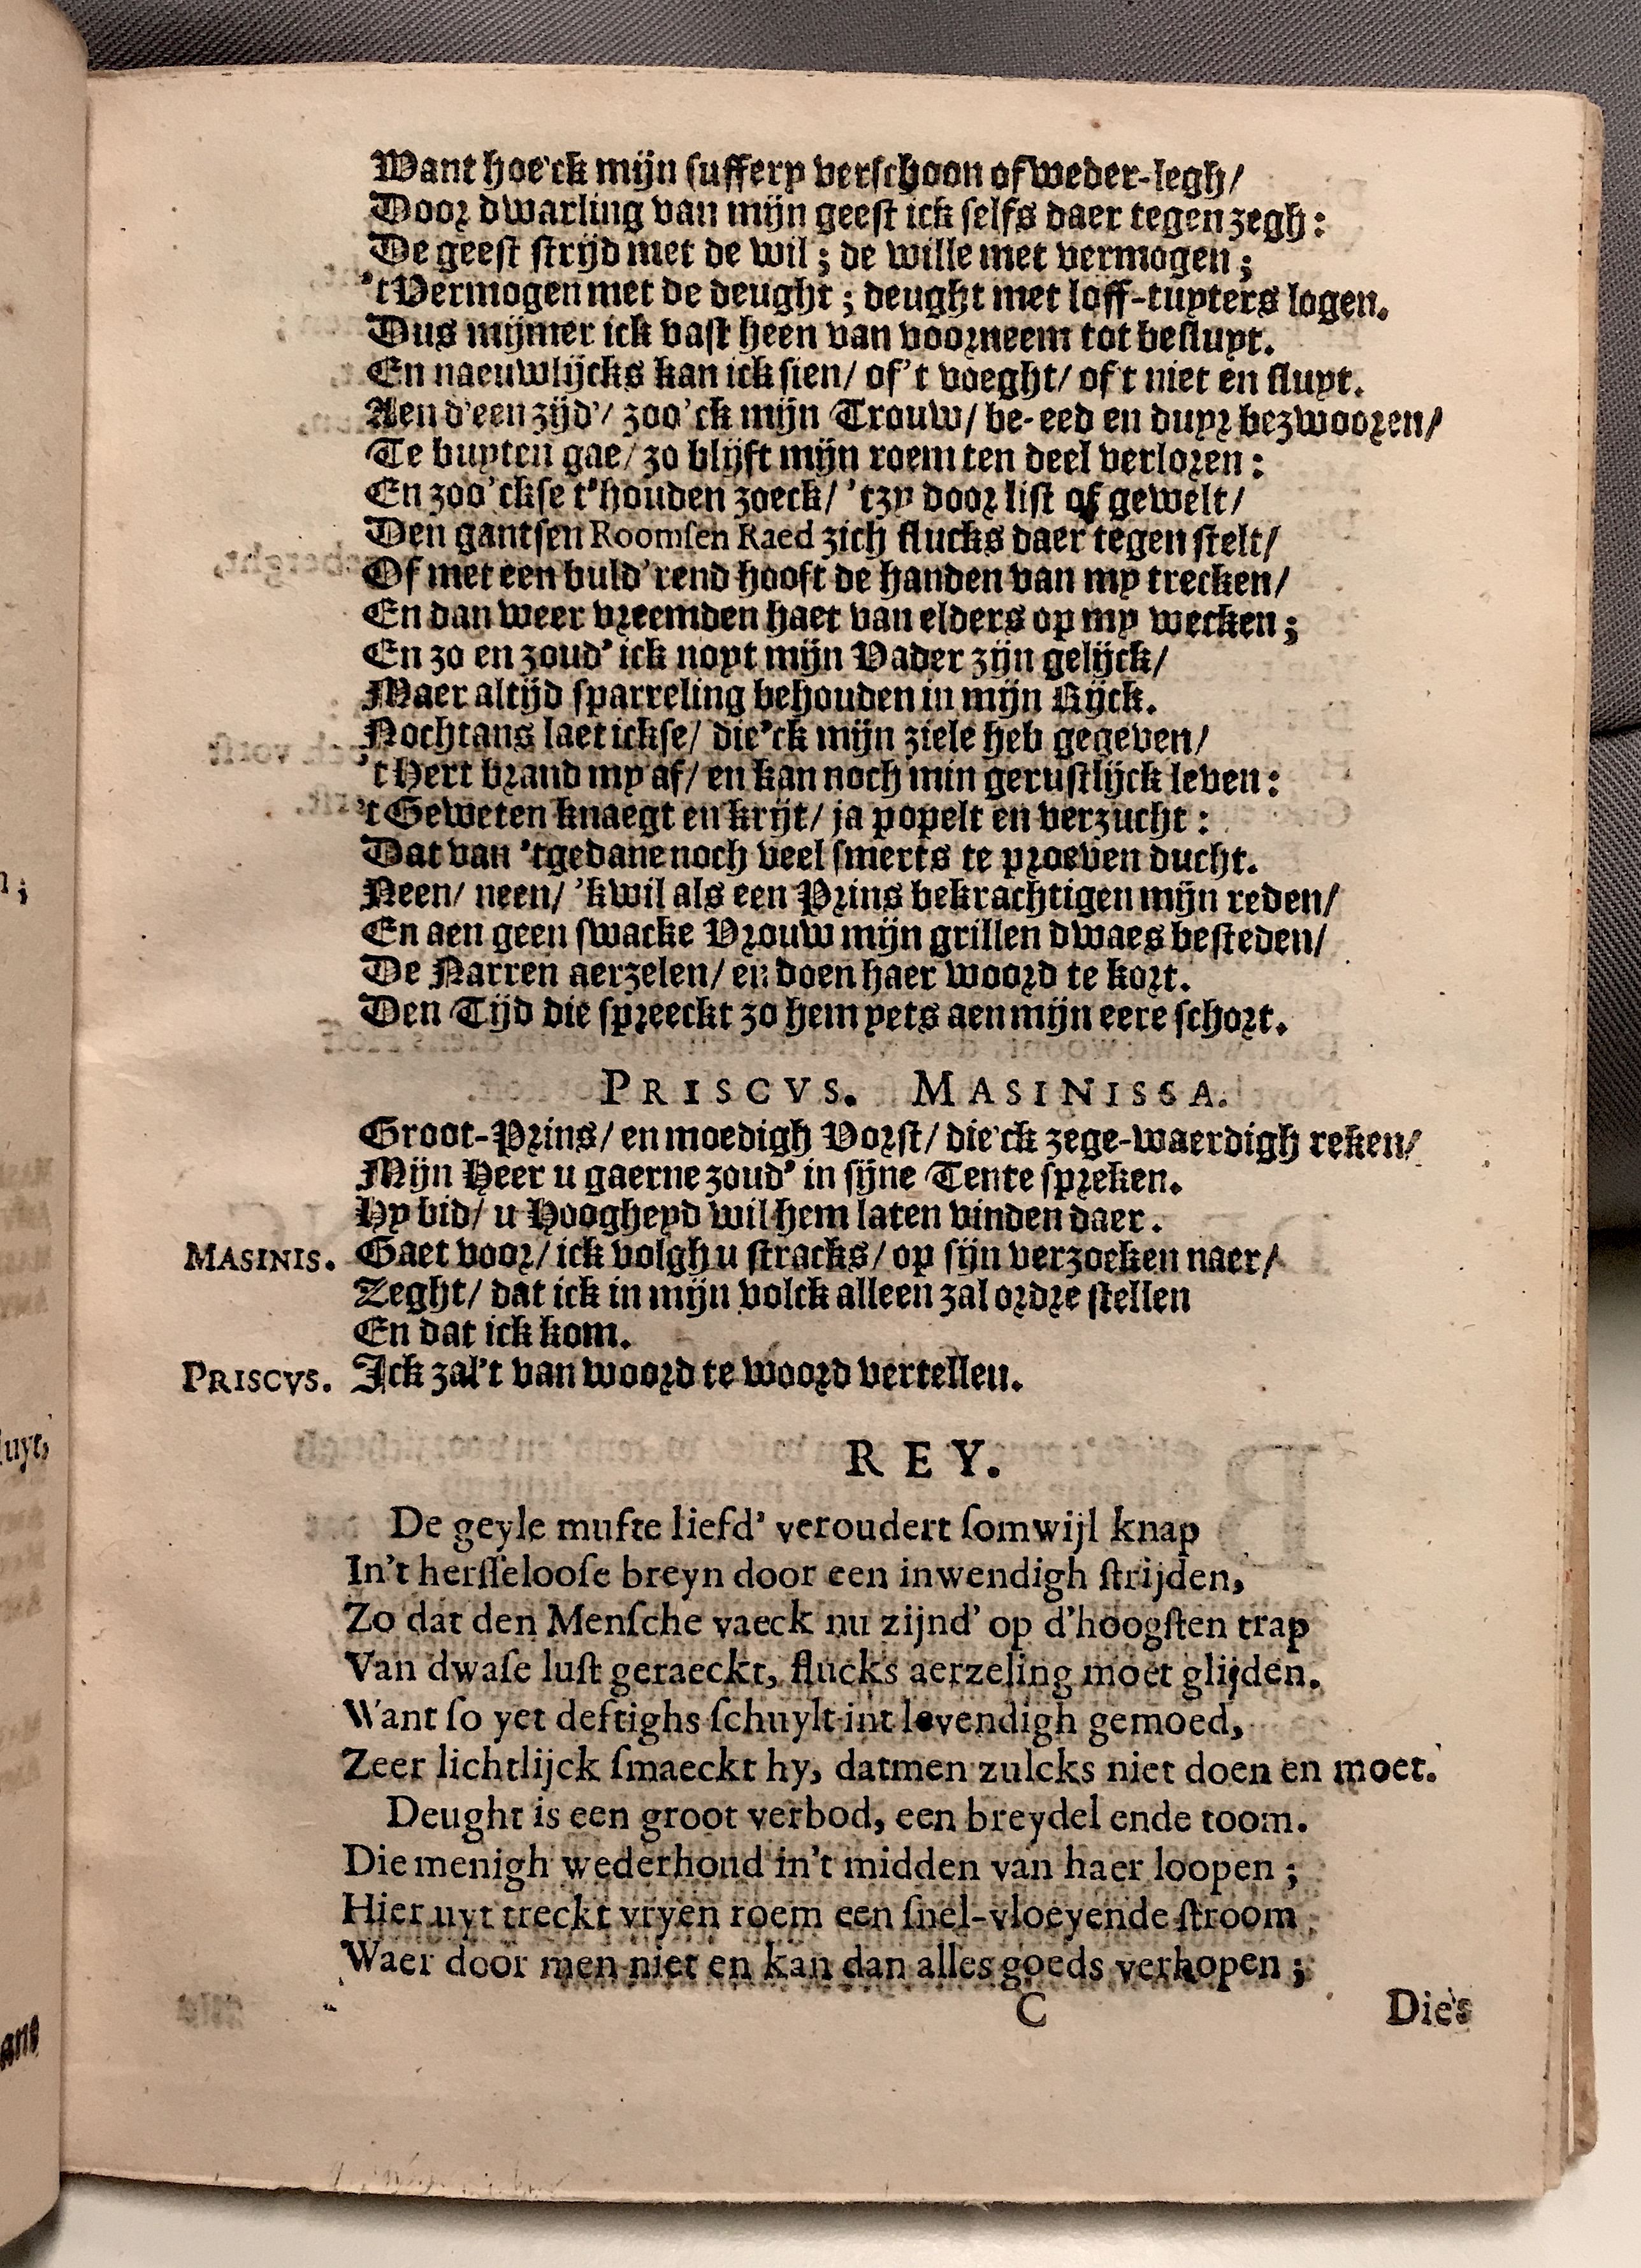 Want hoe'ck mijn suffery verschoon of weder-legh/
Door dwarling van mijn geest ick selfs daer tegen zegh:
De geest strijd met de wil; de wille met vermogen;
't Vermogen met de deught; deught met loff-tuyters logen.
Dus mijmer ick vast heen van voorneem tot besluyt.
En naeuwlijcks kan ick sien/ of't voeght/ of't niet en sluyt.
Aen d'een zijd'/ zoo'ck mijn Trouw/ be-eed en duyr bezwooren/
Te buyten gae/ zo blijft mijn roem ten deel verloren:
En zoo'ckse t'houden zoeck/ 'tzy door list of gewelt/
Den gantsen Roomsen Raed zich flucks daer tegen stelt/
Of met een buld'rend hooft de handen van my trecken/
En dan weer vreemden haet van elders op my wecken;
En zo en zoud' ick noyt mijn Vader zijn gelijck/
Maer altijd sparreling behouden in mijn Rijck.
Nochtans laet ickse/ die'ck mijn ziele heb gegeven/
't Hert brand my af/ en kan noch min gerustlijck leven:
't Geweten knaegt en krijt/ ja popelt en verzucht:
Dat van 'tgedane noch veel smerts te proeven ducht.
Neen/ neen/ 'k wil als een Prins bekrachtigen mijn reden/
En aen geen swacke Vrouw mijn grillen dwaes besteden/
De Narren aerzelen/ en doen haer woord te kort.
Den Tijd die spreeckt zo hem yets aen mijn eere schort.
PRISCVS. MASINISSA.
Groot-Prins/ en moedigh Vorst/ die'ck zege-waerdigh reken/
Mijn Heer u gaerne zoud' in sijne Tente spreken.
Hy bid/ u Hoogheyd wil hem laten vinden daer.
MASINIS. Gaet voor/ ick volgh u stracks/ op sijn verzoecken naer/
Zeght/ dat ick in mijn volck alleen zal ordre stellen
En dat ick kom.
PRISCVS. Ick zal't van woord te woord vertellen.
REY.
De geyle mufte liefd' veroudert somwijl knap
In't hersseloose breyn door een inwendigh strijden,
Zo dat den Mensche vaeck nu zijnd' op d'hoogsten trap
Van dwase lust geraeckt, flucks aerzeling moet glijden.
Want so yet deftighs schuylt int levendigh gemoed,
Zeer lichtlijck smaeckt hy, datmen zulcks niet doen en moet.
Deught is een groot verbod, een breydel ende toom.
Die menigh wederhoud in't midden van haer loopen;
Hier uyt treckt vryen roem een snel-vloeyende stroom
Waer door men niet en kan dan alles goeds verhopen;
C
Die's